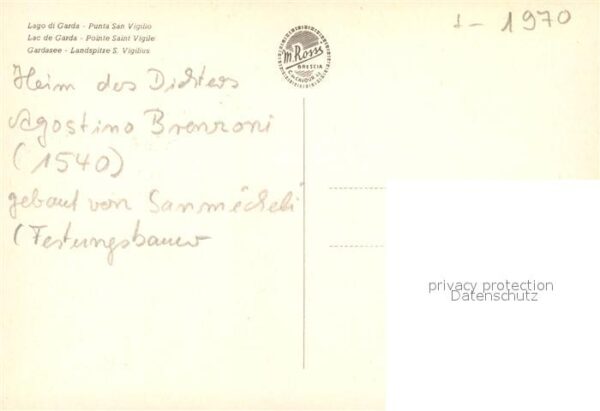 Lago di Garda - Punta San Vigilio
Lac de Garde - Pointe Saint Vigile
Gardasee - Landspitze S. Vigilius
I - 1970
M. Ross
BRESCIA
Heim des Dichters
Agostino Brenzoni
(1540)
gebaut von Sanmícheli
(Festungsbauer
privacy protection
Datenschutz